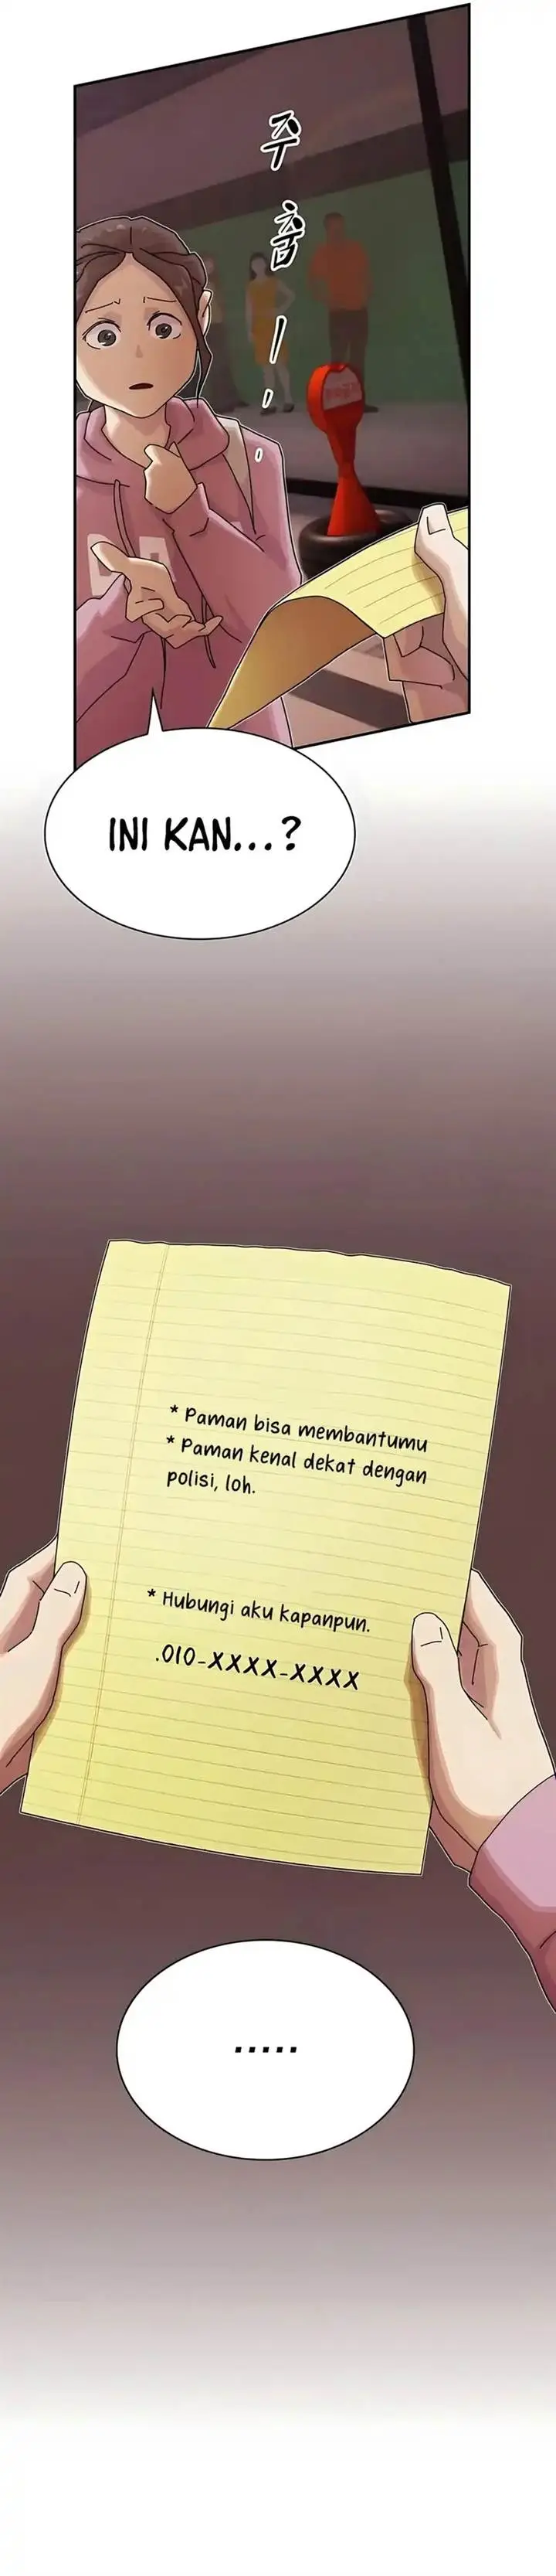 주
춤
INI KAN...?
* Paman bisa membantumu
* Paman kenal dekat dengan
polisi, loh.
* Hubungi aku kapanpun.
.010-XXXX-XXXX
.....